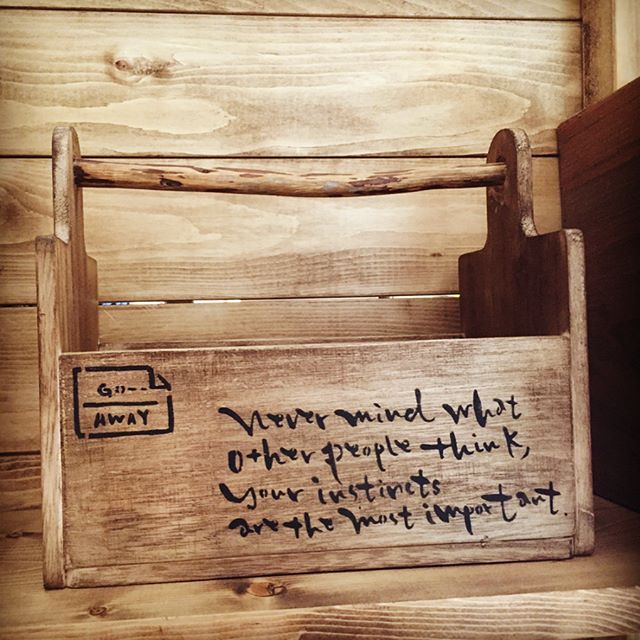 Go--
AWAY
Never mind what
other people think,
your instincts
are the most important.